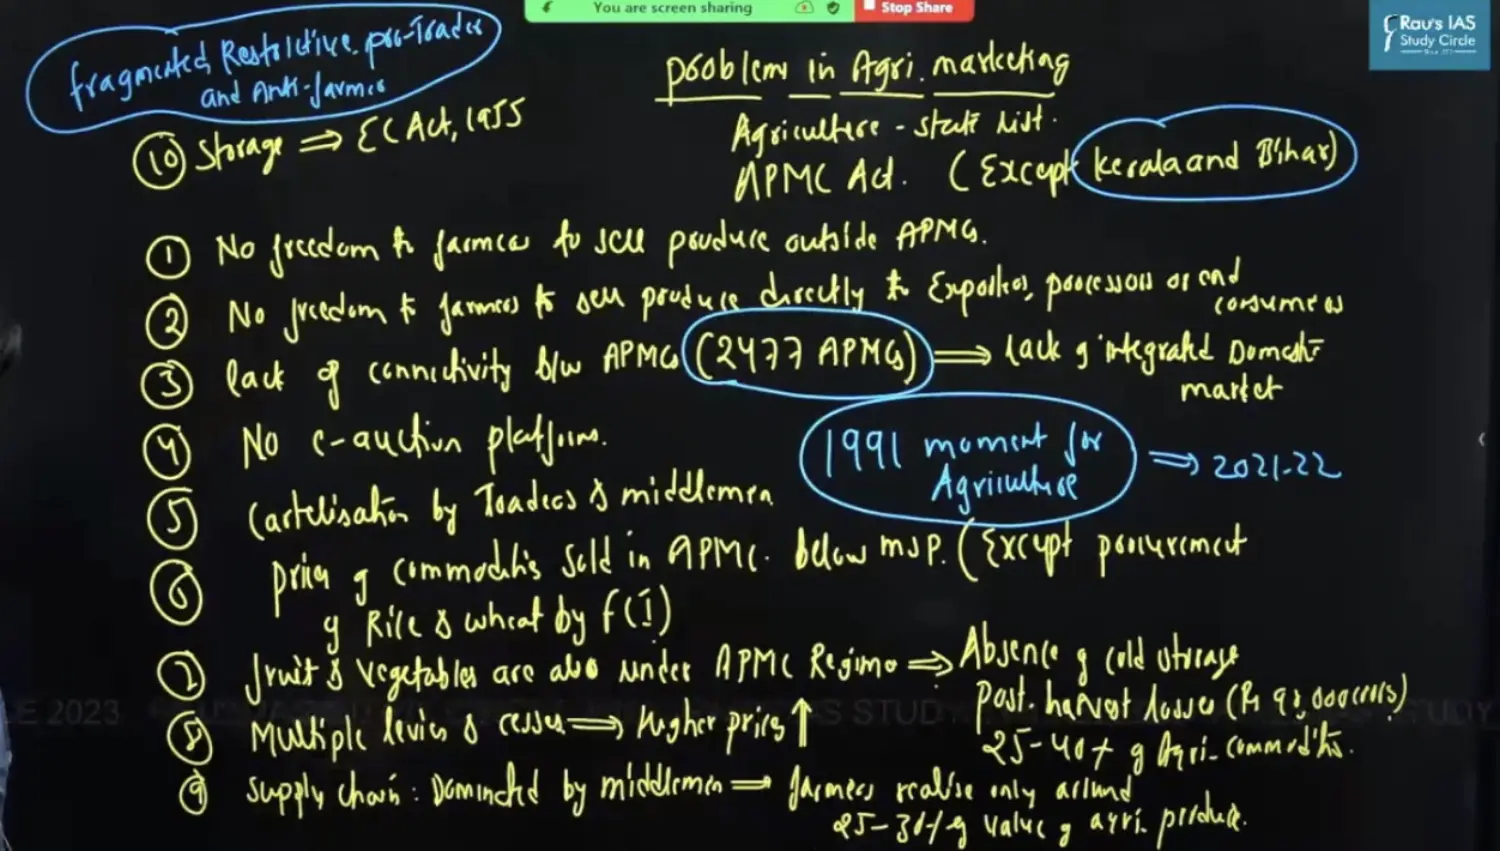 You are screen sharing
Stop Share
Rau's IAS
Study Circle
fragmented, Restrictive, pro-Trader
and Anti-farmer
Problem in Agri. marketing
Agriculture - State List.
APMC Act. (Except Kerala and Bihar)
10 Storage ⇒ EC Act, 1955
1 No freedom to farmers to sell produce outside APMCs.
2 No freedom to farmers to sell produce directly to Exporters, processors or end
consumers
3 lack of connectivity b/w APMCs (2477 APMCs) ⇒ lack of integrated Domestic
market
4 No e-auction platforms.
1991 moment for
Agriculture
⇒ 2021-22
5 Cartelisation by Traders & middlemen
6 prices of commodities sold in APMC. below MSP. (Except procurement
of Rice & wheat by FCI)
7 fruit & vegetables are also under APMC Regime ⇒ Absence of cold storage
Post. harvest losses (Rs 92,000 crores)
25-40% of Agri-commodities.
8 Multiple levies & cesses ⇒ Higher prices ↑
9 Supply chain: Dominated by middlemen ⇒ farmers realise only around
25-30% of value of agri. produce.